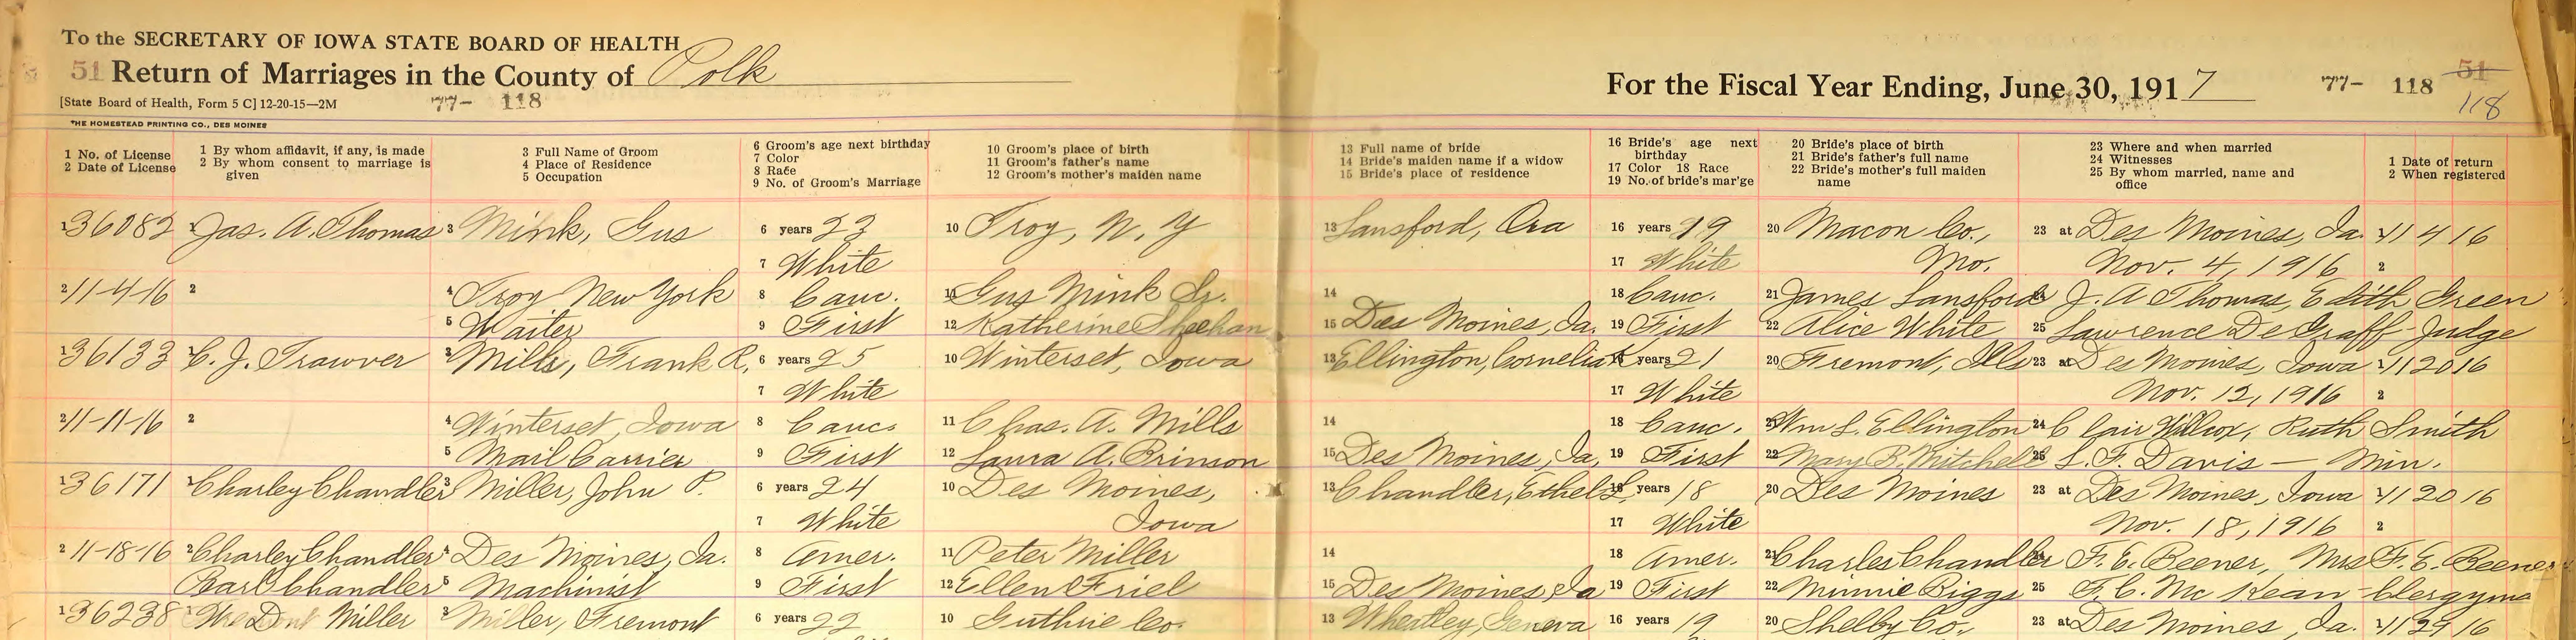 To the SECRETARY OF IOWA STATE BOARD OF HEALTH
51 Return of Marriages in the County of Polk
For the Fiscal Year Ending, June 30, 1917
77- 118 51
118
[State Board of Health, Form 5 C] 12-20-15—2M
77- 118
THE HOMESTEAD PRINTING CO., DES MOINES
1 No. of License
2 Date of License
1 By whom affidavit, if any, is made
2 By whom consent to marriage is given
3 Full Name of Groom
4 Place of Residence
5 Occupation
6 Groom's age next birthday
7 Color
8 Race
9 No. of Groom's Marriage
10 Groom's place of birth
11 Groom's father's name
12 Groom's mother's maiden name
13 Full name of bride
14 Bride's maiden name if a widow
15 Bride's place of residence
16 Bride's age next birthday
17 Color 18 Race
19 No. of bride's mar'ge
20 Bride's place of birth
21 Bride's father's full name
22 Bride's mother's full maiden name
23 Where and when married
24 Witnesses
25 By whom married, name and office
1 Date of return
2 When registered
1 36082 1 Jas. A. Thomas 3 Mink, Gus 6 years 23 10 Troy, N. Y 13 Lansford, Ora 16 years 19 20 Macon Co., 23 at Des Moines, Ia. 1 11 4 16
7 White 17 White Mo. Nov. 4, 1916 2
2 11-4-16 2 4 Troy New York 8 Cauc. 11 Gus Mink Sr. 14 18 Cauc. 21 James Lansford 24 J. A Thomas, Edith Green
5 Waiter 9 First 12 Katherine Sheehan 15 Des Moines, Ia. 19 First 22 Alice White 25 Lawrence De Graff - Judge
1 36133 1 C. J. Trawver 3 Mills, Frank R. 6 years 25 10 Winterset, Iowa 13 Ellington, Cornelia 16 years 21 20 Fremont, Ills 23 at Des Moines, Iowa 1 11 20 16
7 White 17 White Nov. 12, 1916 2
2 11-11-16 2 4 Winterset, Iowa 8 Cauc. 11 Chas. A. Mills 14 18 Cauc. 21 Wm L. Ellington 24 Clair Willcox, Ruth Smith
5 Mail Carrier 9 First 12 Laura A. Brinson 15 Des Moines, Ia. 19 First 22 Mary B. Mitchell 25 L. F. Davis — Min.
1 36171 1 Charley Chandler 3 Miller, John P. 6 years 24 10 Des Moines, 13 Chandler, Ethel L 16 years 18 20 Des Moines 23 at Des Moines, Iowa 1 11 20 16
7 White Iowa 17 White Nov. 18, 1916 2
2 11-18-16 2 Charley Chandler 4 Des Moines, Ia. 8 Amer. 11 Peter Miller 14 18 Amer. 21 Charles Chandler 24 F. E. Beener, Mrs F. E. Beener
Chandler 5 Machinist 9 First 12 Ellen Friel 15 Des Moines, Ia 19 First 22 Minnie Biggs 25 F. C. Mc Kean - Clergyma
1 36238 1 Miller 3 Miller, Fremont 6 years 22 10 Guthrie Co. 13 Wheatley, Geneva 16 years 19 20 Shelby Co. 23 at Des Moines, Ia. 1 11 29 16